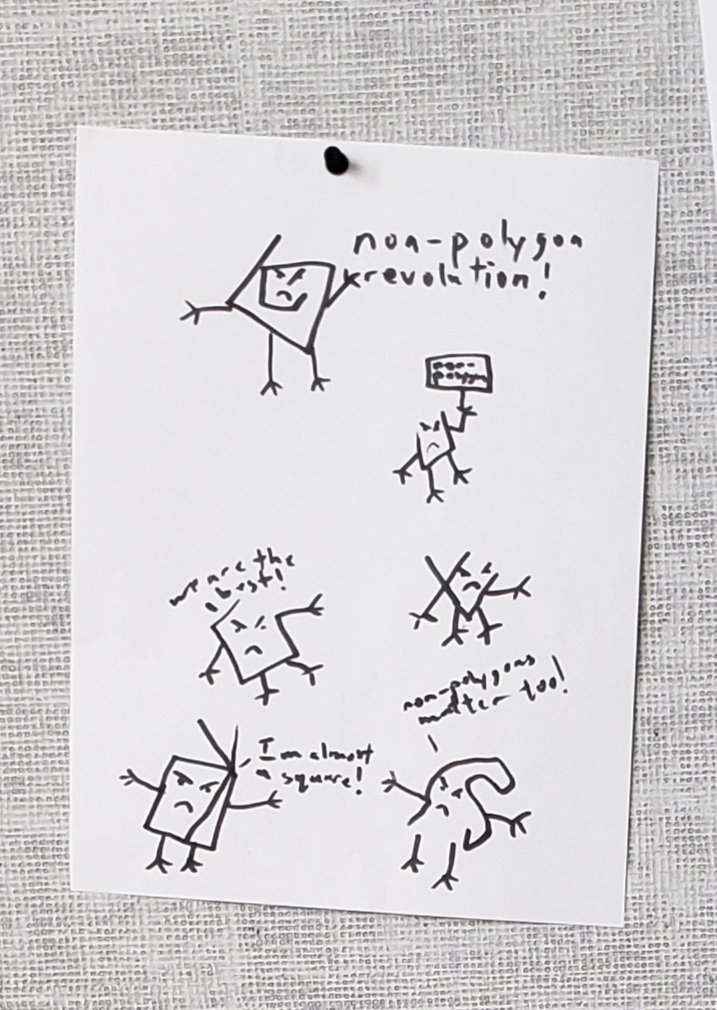 non-polygon
revolution!
non-
polygon
we are the
best!
non-polygons
matter too!
I'm almost
a square!